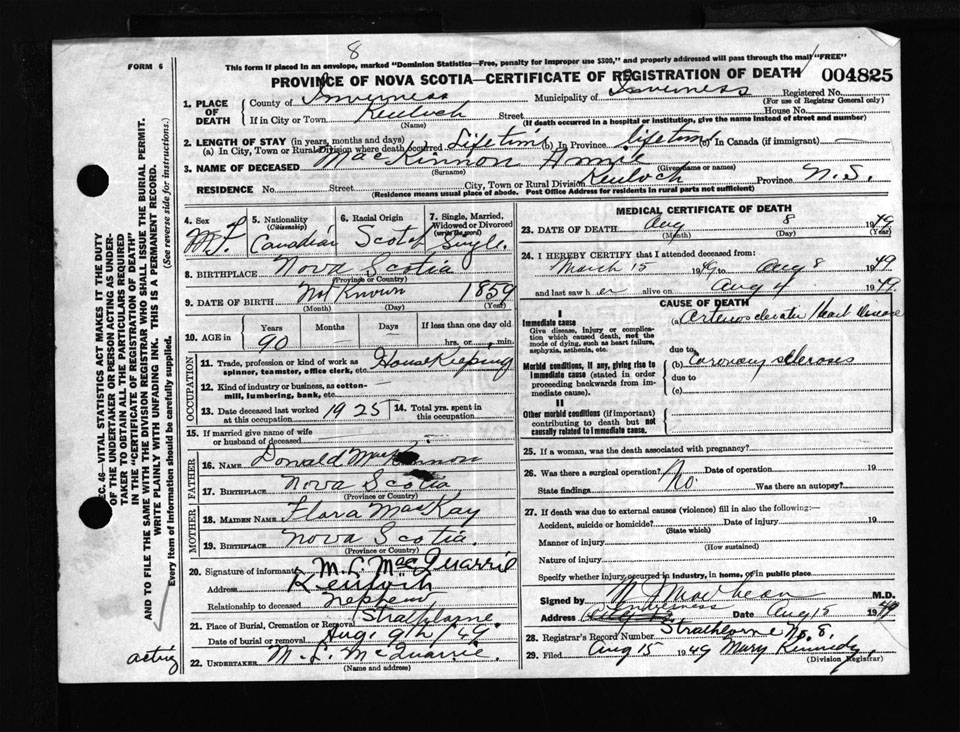 8
FORM 6
This form if placed in an envelope, marked "Dominion Statistics—Free, penalty for improper use $300," and properly addressed will pass through the mail "FREE"
PROVINCE OF NOVA SCOTIA—CERTIFICATE OF REGISTRATION OF DEATH 004825
1. PLACE OF DEATH
County of Inverness Municipality of Inverness Registered No.
(For use of Registrar General only)
If in City or Town Street House No.
(Name) (If death occurred in a hospital or institution, give the name instead of street and number)
2. LENGTH OF STAY (in years, months and days)
(a) In City, Town or Rural Division where death occurred Lifetime (b) In Province Lifetime (c) In Canada (if immigrant) —
3. NAME OF DECEASED MacKinnon Annie
(Surname) (Given name or names)
RESIDENCE No. Street City, Town or Rural Division Province N.S.
(Residence means usual place of abode. Post Office Address for residents in rural parts not sufficient)
4. Sex F.
5. Nationality (Citizenship) Canadian
6. Racial Origin Scotch
7. Single, Married, Widowed or Divorced (write the word) Single.
8. BIRTHPLACE Nova Scotia
(Province or Country)
9. DATE OF BIRTH Not Known 1859
(Month) (Day) (Year)
10. AGE in Years Months Days If less than one day old
90 — hrs. or min.
OCCUPATION
11. Trade, profession or kind of work as spinner, teamster, office clerk, etc. HouseKeeping
12. Kind of industry or business, as cotton-mill, lumbering, bank, etc.
13. Date deceased last worked at this occupation 1925 14. Total yrs. spent in this occupation
15. If married give name of wife or husband of deceased
FATHER
16. NAME Donald MacKinnon
17. BIRTHPLACE Nova Scotia
(Province or Country)
MOTHER
18. MAIDEN NAME Flora MacKay
19. BIRTHPLACE Nova Scotia.
(Province or Country)
20. Signature of informant M. L. MacQuarrie
Address
Relationship to deceased nephew
21. Place of Burial, Cremation or Removal Strathlorne
Date of burial or removal Aug. 9th/49
acting
22. UNDERTAKER M. L. McQuarrie.
(Name and address)
MEDICAL CERTIFICATE OF DEATH
23. DATE OF DEATH Aug 8 1949
(Month) (Day) (Year)
24. I HEREBY CERTIFY that I attended deceased from:
March 15 1949 to Aug 8 1949
and last saw her alive on Aug 4 1949
CAUSE OF DEATH
I
Immediate cause
Give disease, injury or complication which caused death, not the mode of dying, such as heart failure, asphyxia, asthenia, etc.
(a) Heart Disease
due to
Morbid conditions, if any, giving rise to immediate cause (stated in order proceeding backwards from immediate cause).
(b) Coronary sclerosis
due to
(c)
II
Other morbid conditions (if important) contributing to death but not causally related to immediate cause.
25. If a woman, was the death associated with pregnancy?
26. Was there a surgical operation? No. Date of operation 19
State findings Was there an autopsy?
27. If death was due to external causes (violence) fill in also the following:—
Accident, suicide or homicide? Date of injury 19
(State which)
Manner of injury
(How sustained)
Nature of injury
Specify whether injury occurred in industry, in home, or in public place
Signed by M.D.
Address Inverness Date Aug 15 1949
28. Registrar's Record Number Strathlorne No. 8.
29. Filed Aug 15 1949 Mary Kennedy
(Division Registrar)
SEC. 46—VITAL STATISTICS ACT MAKES IT THE DUTY OF THE UNDERTAKER OR PERSON ACTING AS UNDERTAKER TO OBTAIN ALL THE PARTICULARS REQUIRED IN THE "CERTIFICATE OF REGISTRATION OF DEATH" AND TO FILE THE SAME WITH THE DIVISION REGISTRAR WHO SHALL ISSUE THE BURIAL PERMIT.
WRITE PLAINLY WITH UNFADING INK. THIS IS A PERMANENT RECORD.
Every item of Information should be carefully supplied. (See reverse side for instructions.)